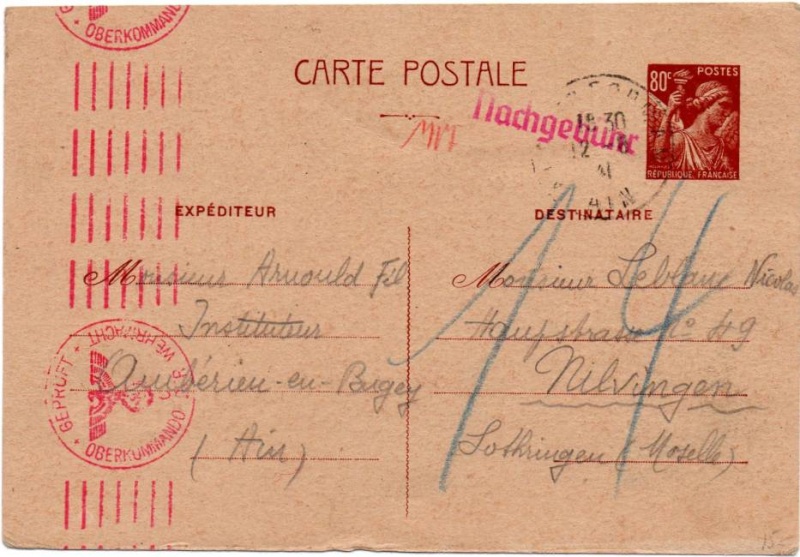 OBERKOMMANDO
CARTE POSTALE
80c POSTES
RÉPUBLIQUE FRANÇAISE
Nachgebühr
18 30
12
41
AIN
EXPÉDITEUR
DESTINATAIRE
Monsieur Arnould Fél
Instituteur
Ambérieu-en-Bugey
(Ain)
Monsieur Leblanc Nicolas
Hauptstrasse No 49
Nilvingen
Lothringen (Moselle)
14
GEPRÜFT
OBERKOMMANDO D.B. WEHRMACHT
15-